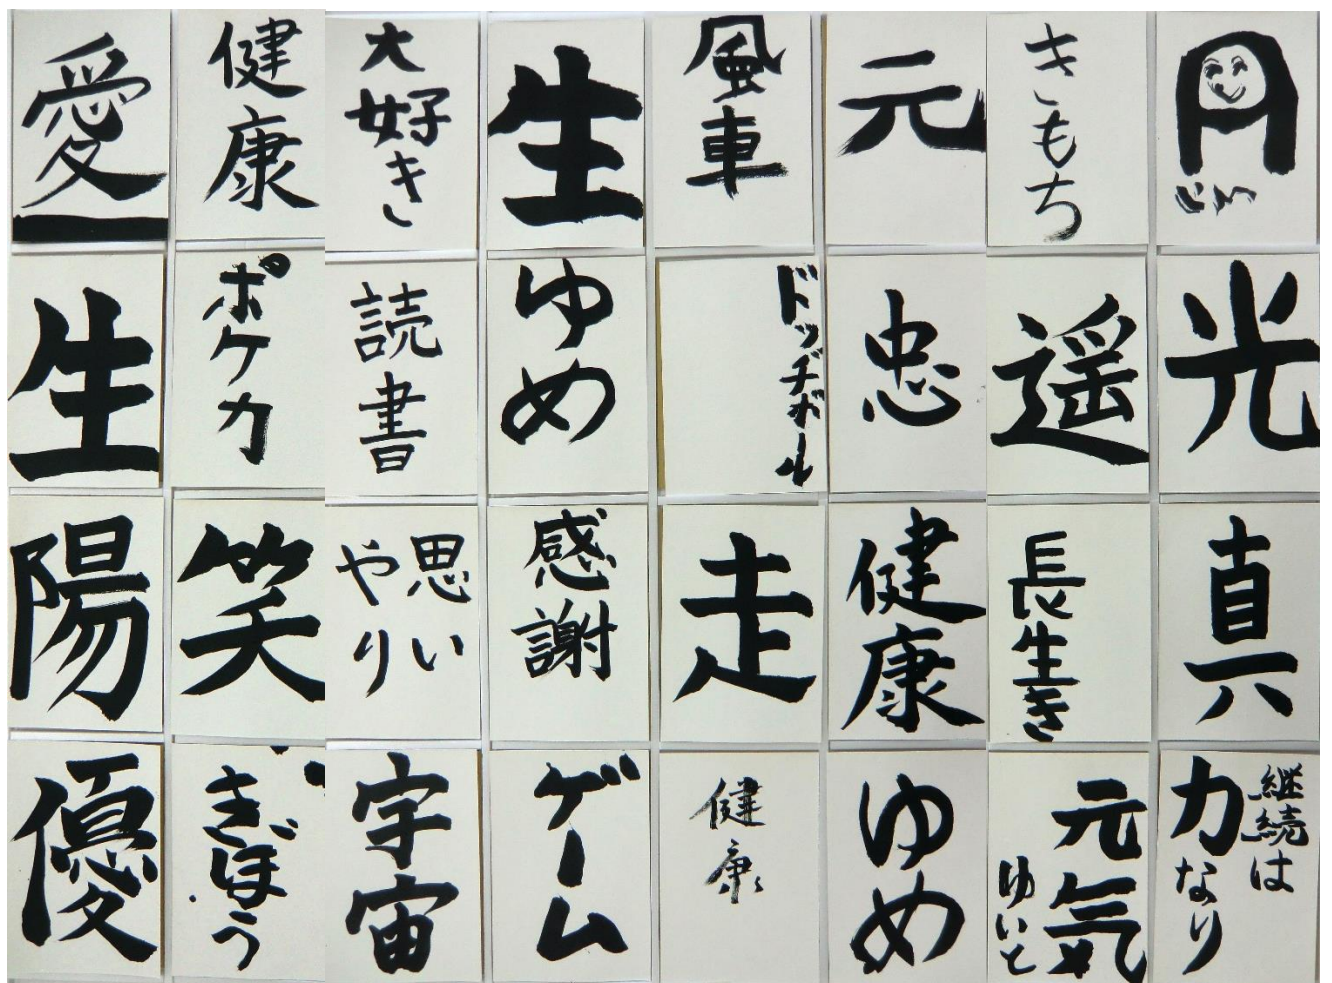 愛
健康
大好き
生
風車
元
きもち
円
生
ポケカ
読書
ゆめ
ドッヂボール
忠
遥
光
陽
笑
思い
やり
感謝
走
健康
長生き
真
優
きぼう
宇宙
ゲーム
健康
ゆめ
元気
ゆいと
継続は
力なり